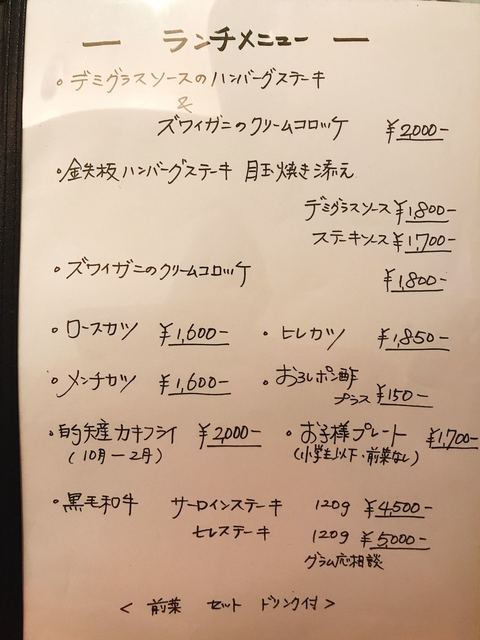 ー ランチメニュー ー
・デミグラスソースのハンバーグステーキ
&
ズワイガニのクリームコロッケ ¥2,000-
・鉄板ハンバーグステーキ 目玉焼き添え
デミグラスソース ¥1,800-
ステーキソース ¥1,700-
・ズワイガニのクリームコロッケ ¥1,800-
・ロースカツ ¥1,600- ・ヒレカツ ¥1,850-
・メンチカツ ¥1,600- ・おろしポン酢
プラス ¥150-
・的矢産カキフライ ¥2,000- ・お子様プレート ¥1,700-
(10月ー2月) (小学生以下・前菜なし)
・黒毛和牛 サーロインステーキ 120g ¥4,500-
ヒレステーキ 120g ¥5,000-
グラム応相談
< 前菜 セット ドリンク付 >